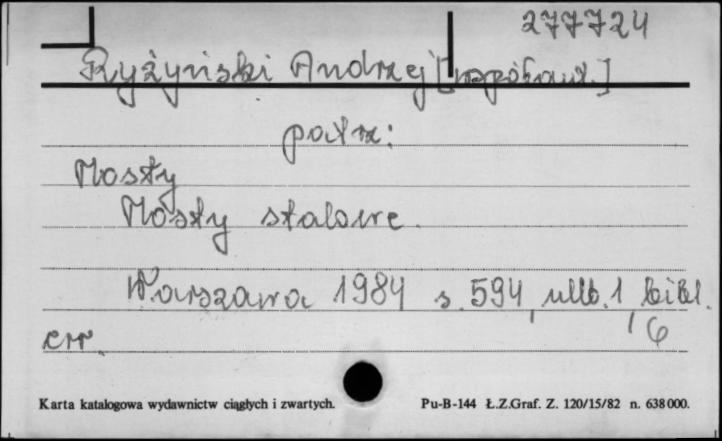 277724
Ryżyński Andrzej [współaut.]
patrz:
Mosty
Mosty stalowe.
Warszawa 1984 s. 594, nlb. 1, bibl.
6
Karta katalogowa wydawnictw ciągłych i zwartych.
Pu-B-144 Ł.Z.Graf. Z. 120/15/82 n. 638 000.